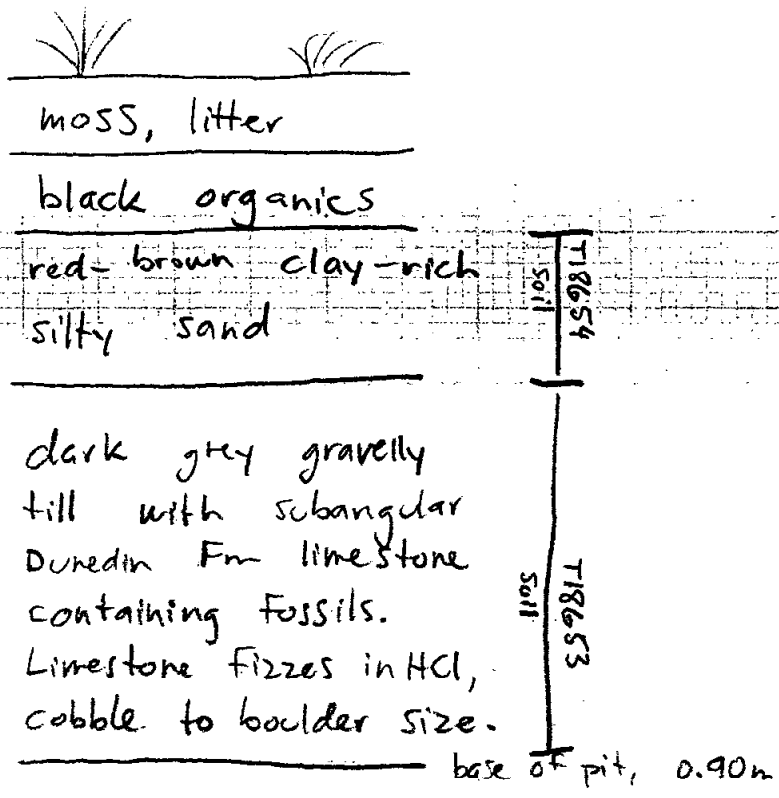 moss, litter
black organics
red-brown clay-rich
silty sand
T18654
Soil
dark grey gravelly
till with subangular
Dunedin Fm limestone
containing fossils.
Limestone fizzes in HCl,
cobble to boulder size.
T18653
Soil
base of pit, 0.90m